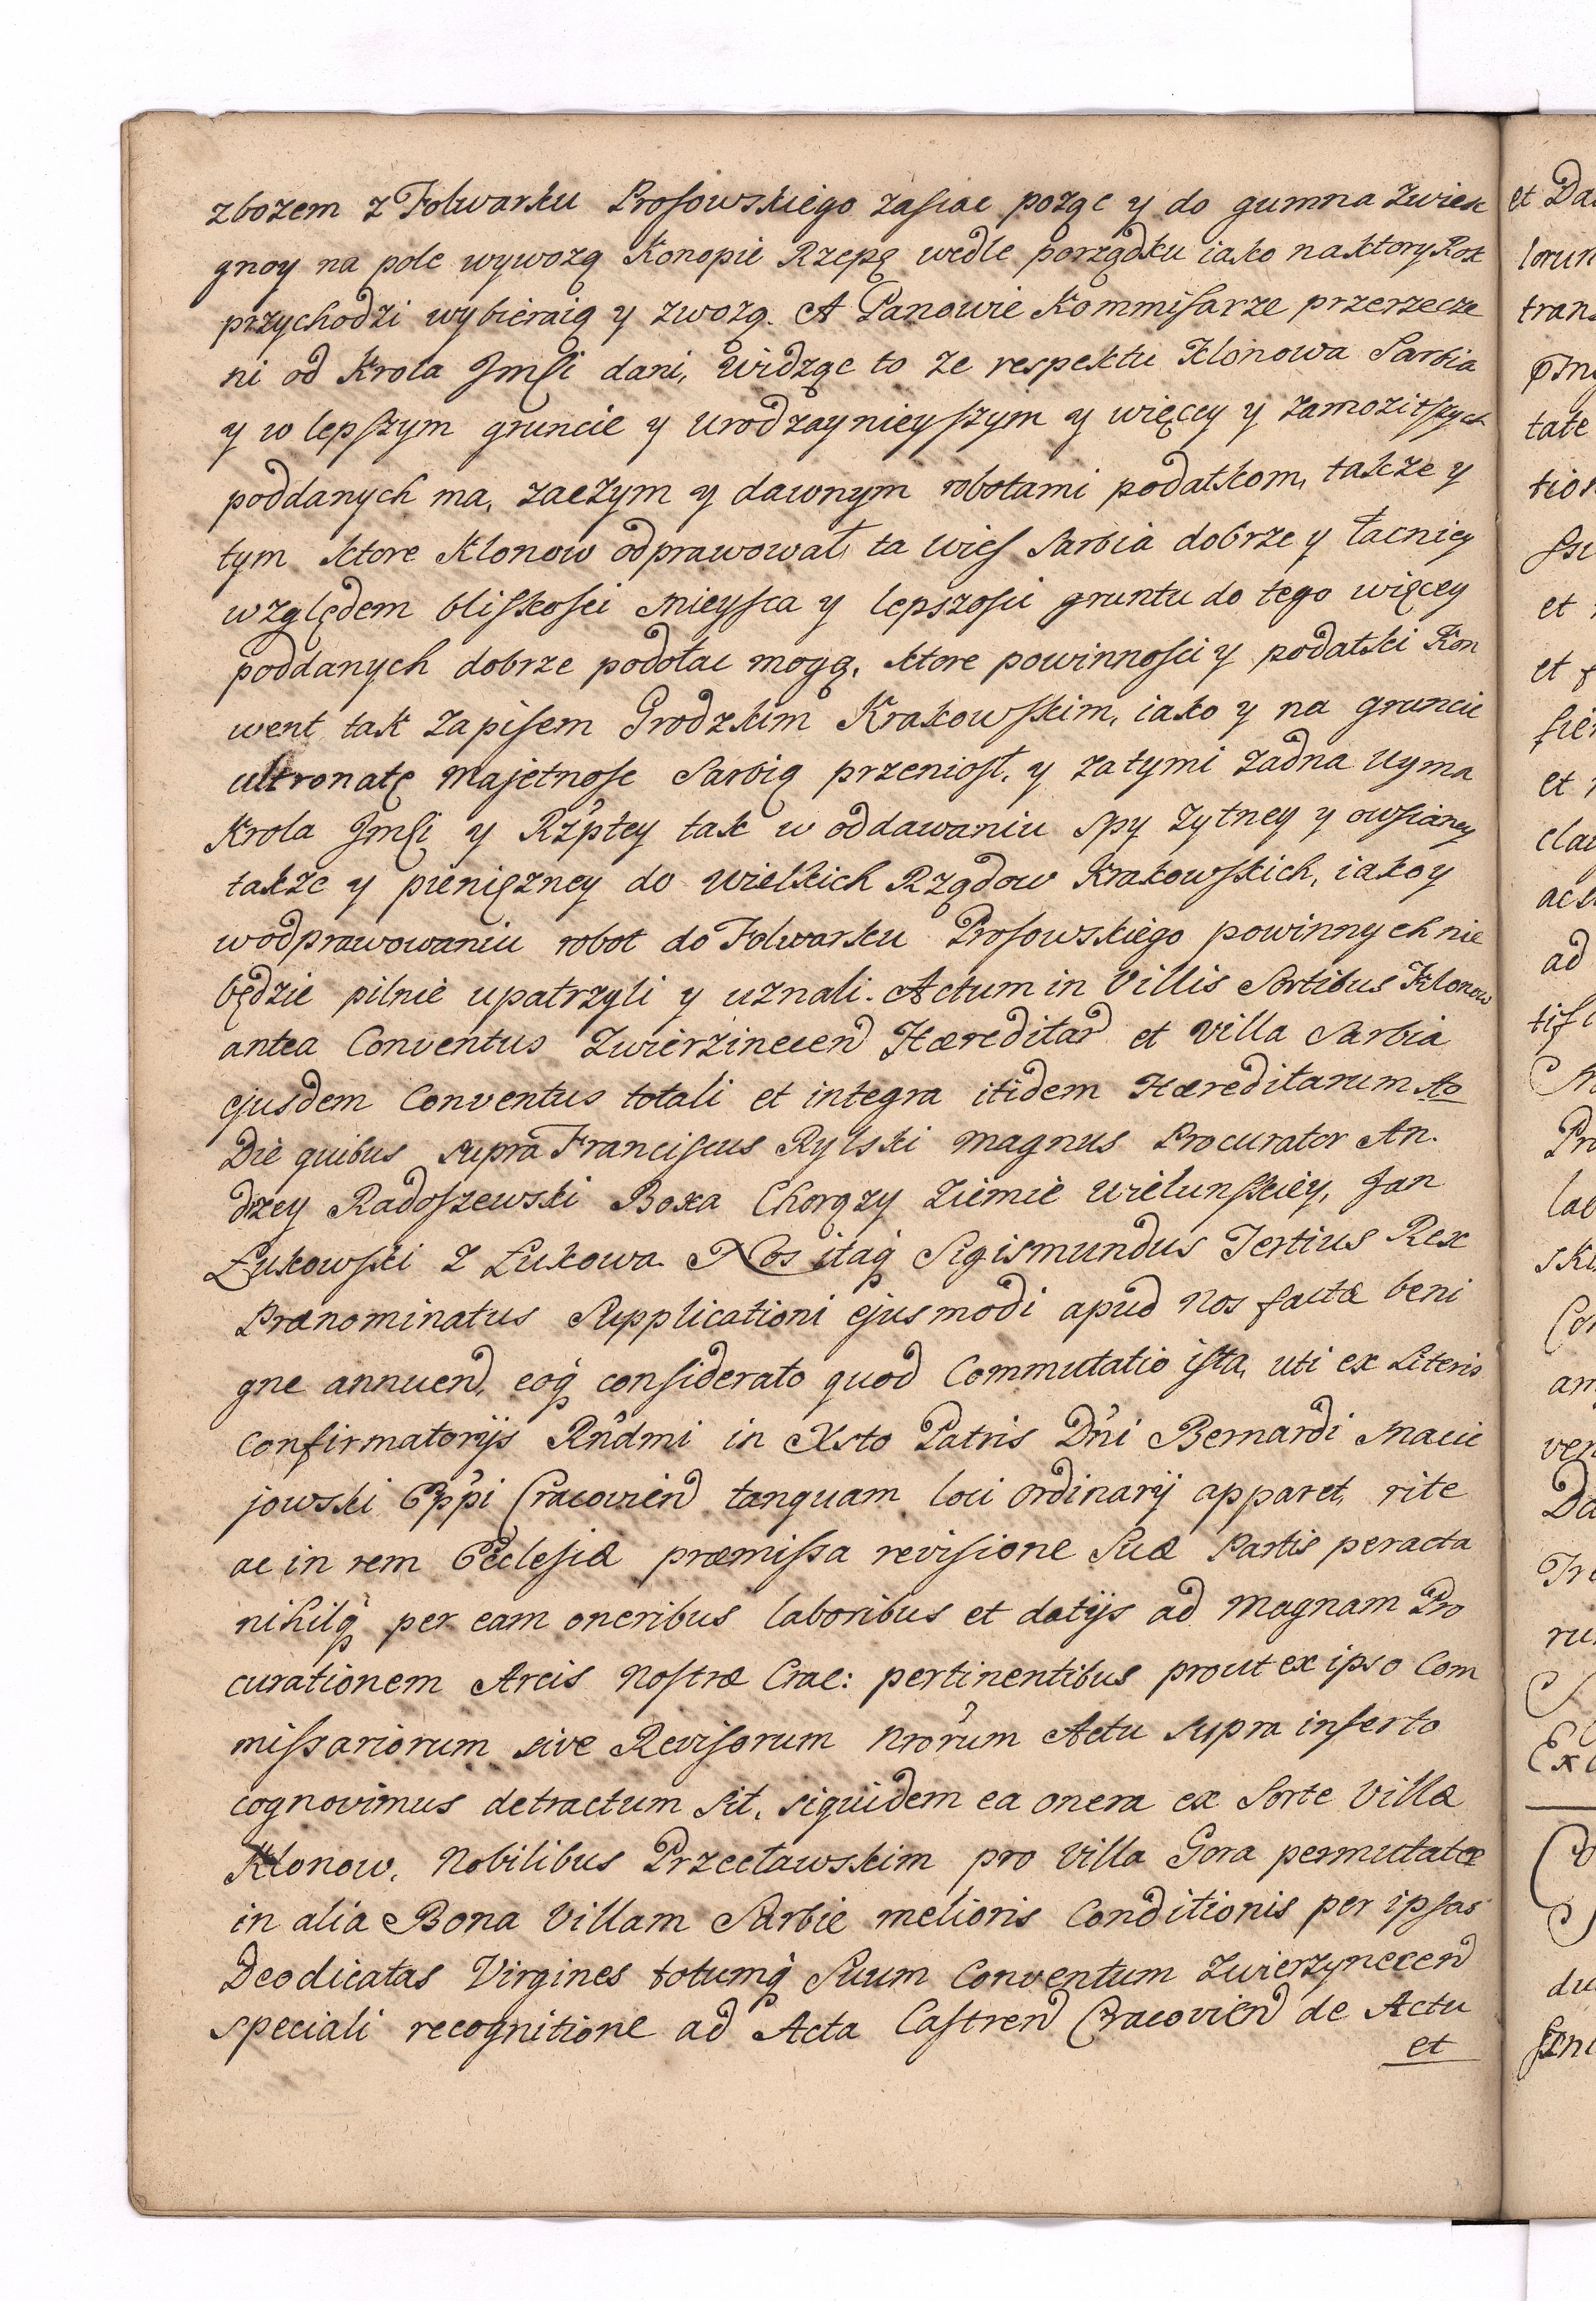 zbozem z Folwarku Prosowskiego zasiac pożąc y do gumna zwiesc
gnoy na pole wywozą Konopie Rzepę wedle porządku iako na ktory Rok
przychodzi wybieraią y zwozą. A Panowie Kommisarze przerzecze
ni od Krola Jmsci dani, widząc to ze respektu Klonowa Sarbia
y w lepszym gruncie y urodzaynieyszym y więcey y zamozitszych
poddanych ma, zaczym y dawnym robotami podatkom, takze y
tym ktore Klonow odprawował ta wies Sarbia dobrze y łacniey
względem bliskosci mieysca y lepszosci gruntu do tego więcey
poddanych dobrze podołac mogą, ktore powinnosci y podatki Kon
went tak zapisem Grodzkim Krakowskim, iako y na gruncie
ultronatę Majętnosc Sarbią przeniosł, y za tymi zadna uyma
Krola Jmsci y Rzptey tak w oddawaniu spy zytney y owsianey
takze y pienięzney do wielkich Rządow Krakowskich, iako y
w odprawowaniu robot do Folwarku Prosowskiego powinnych nie
będzie pilnie upatrzyli y uznali. Actum in Villis Sortibus Klonow
antea Conventus Zwierzinecen Hæreditar et Villa Sarbia
ejusdem Conventus totali et integra itidem Hæreditarum Ao
Die quibus supra Franciscus Rylski Magnus Procurator An.
drzey Radoszewski Boxa Chorązy Ziemie Wielunskiey, Jan
Łukowski z Łukowa. Nos itaq Sigismundus Tertius Rex
Prænominatus Supplicationi ejusmodi apud Nos factæ beni
gne annuend, eoq considerato quod Commutatio ista, uti ex Literis
confirmatorijs Rndmi in Xsto Patris Dni Bernardi Macie
jowski Eppi Cracovien tanquam loci ordinarij apparet, rite
ac in rem Ecclesiæ præmissa revisione Suæ Partis peracta
nihilq per eam oneribus laboribus et datijs ad Magnam Pro
curationem Arcis Nostræ Crac: pertinentibus prout ex ipso Com
missariorum sive Revisorum Nrorum Actu supra inserto
cognovimus detractum sit, siquidem ea onera ex Sorte Villæ
Klonow, Nobilibus Przecławskim pro Villa Gora permutatæ
in alia Bona Villam Sarbie melioris Conditionis per ipsas
Deodicatas Virgines totumq Suum Conventum Zwierzynecen
speciali recognitione ad Acta Castren Cracovien de Actu
et